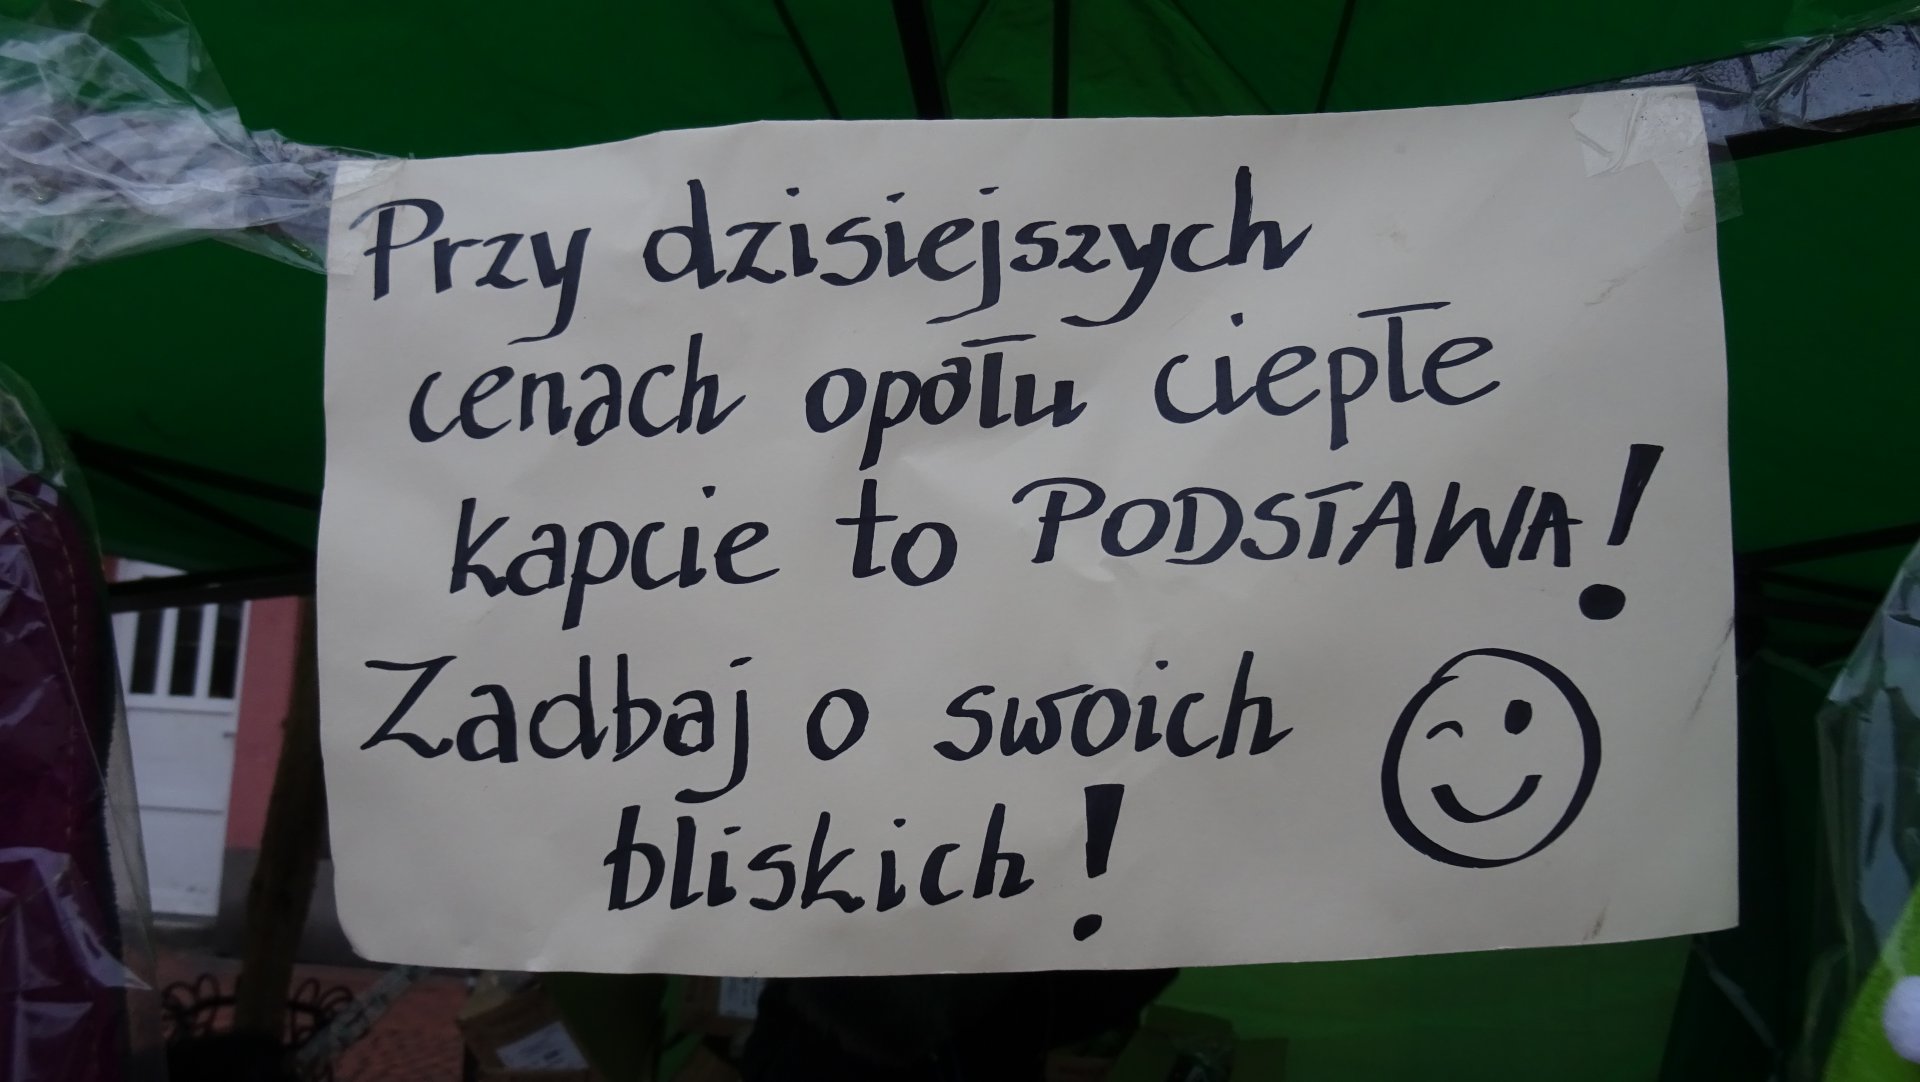 Przy dzisiejszych
cenach opału ciepłe
kapcie to PODSTAWA!
Zadbaj o swoich
bliskich!